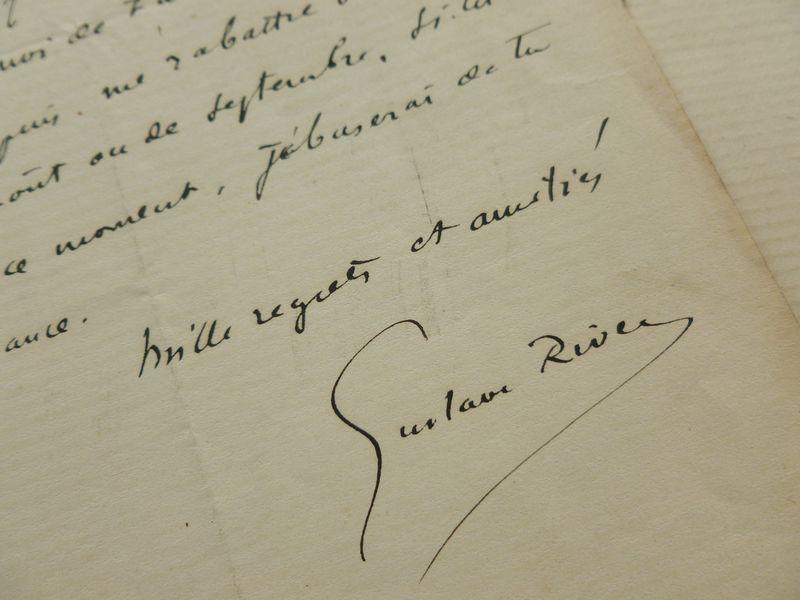 me rabattre
août ou de septembre. Si les
ce moment, j'abuserai de ta
Mille regrets et amitiés
Gustave Rivet